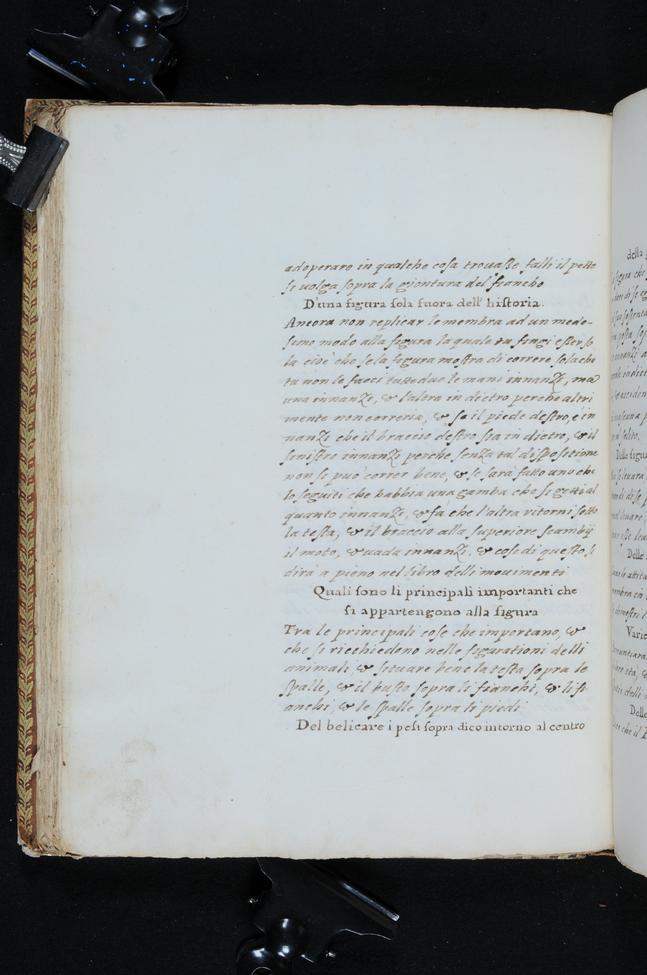 adoperaro in qualche cosa trouasse falli il petto
se uolga sopra la giontura del fianco
D'una figura sola fuora dell' historia.
Ancora non replicar le membra ad un mede-
simo modo alla figura la quale tu fingi esser so
la cioè che se la figura mostra di correre sola che
tu non le facci tutte due le mani innanzi, ma
una innanzi, & l'altra in dietro perche altri
mente non correria, & se il piede destro, è in
nanzi che il braccio destro sia in dietro, & il
sinistro innanzi perche senza tal dispositione
non si può correr bene, & se sarà fatto uno che
lo seguiti che habbia una gamba che si getti al
quanto innanzi, & fa che l'altra ritorni sotto
la testa, & il braccio alla superiore scambij
il moto, & uada innanzi, & cosi di questo si
dirà a pieno nel libro delli mouimenti
Quali sono li principali importanti che
si appartengono alla figura
Tra le principali cose che importano, &
che si ricchiedono nelle figurationi delli
animali & situare bene la testa sopra le
spalle, & il busto sopra li fianchi, & li fi
anchi, & le spalle sopra li piedi
Del belicare i pesi sopra dico intorno al centro